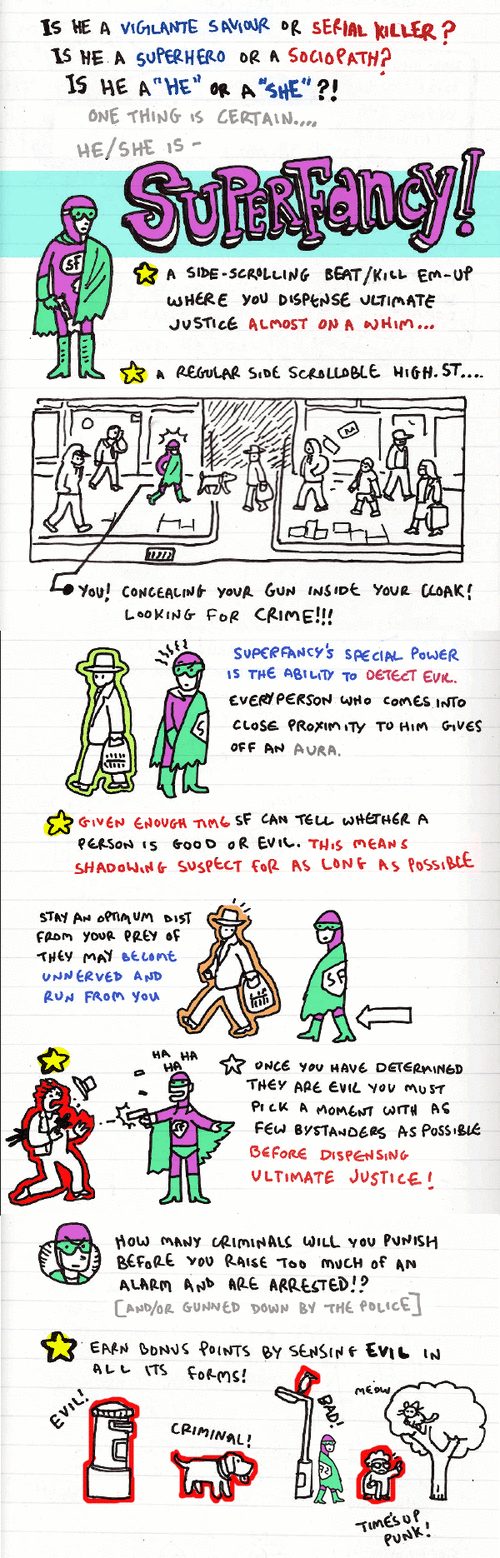 IS HE A VIGILANTE SAVIOUR OR SERIAL KILLER?
IS HE A SUPERHERO OR A SOCIOPATH?
IS HE A "HE" OR A "SHE"?!
ONE THING IS CERTAIN....
HE/SHE IS -
SUPERFANCY!
SF
A SIDE-SCROLLING BEAT/KILL EM-UP
WHERE YOU DISPENSE ULTIMATE
JUSTICE ALMOST ON A WHIM...
A REGULAR SIDE SCROLLABLE HIGH.ST....
YOU! CONCEALING YOUR GUN INSIDE YOUR CLOAK!
LOOKING FOR CRIME!!!
SUPERFANCY'S SPECIAL POWER
IS THE ABILITY TO DETECT EVIL.
EVERYPERSON WHO COMES INTO
CLOSE PROXIMITY TO HIM GIVES
OFF AN AURA.
GIVEN ENOUGH TIME SF CAN TELL WHETHER A
PERSON IS GOOD OR EVIL. THIS MEANS
SHADOWING SUSPECT FOR AS LONG AS POSSIBLE
STAY AN OPTIMUM DIST
FROM YOUR PREY OF
THEY MAY BECOME
UNNERVED AND
RUN FROM YOU
SF
HA HA
HA
SF
ONCE YOU HAVE DETERMINED
THEY ARE EVIL YOU MUST
PICK A MOMENT WITH AS
FEW BYSTANDERS AS POSSIBLE
BEFORE DISPENSING
ULTIMATE JUSTICE!
HOW MANY CRIMINALS WILL YOU PUNISH
BEFORE YOU RAISE TOO MUCH OF AN
ALARM AND ARE ARRESTED!?
[AND/OR GUNNED DOWN BY THE POLICE]
EARN BONUS POINTS BY SENSING EVIL IN
ALL ITS FORMS!
EVIL!
CRIMINAL!
BAD!
MEOW
TIME'S UP
PUNK!